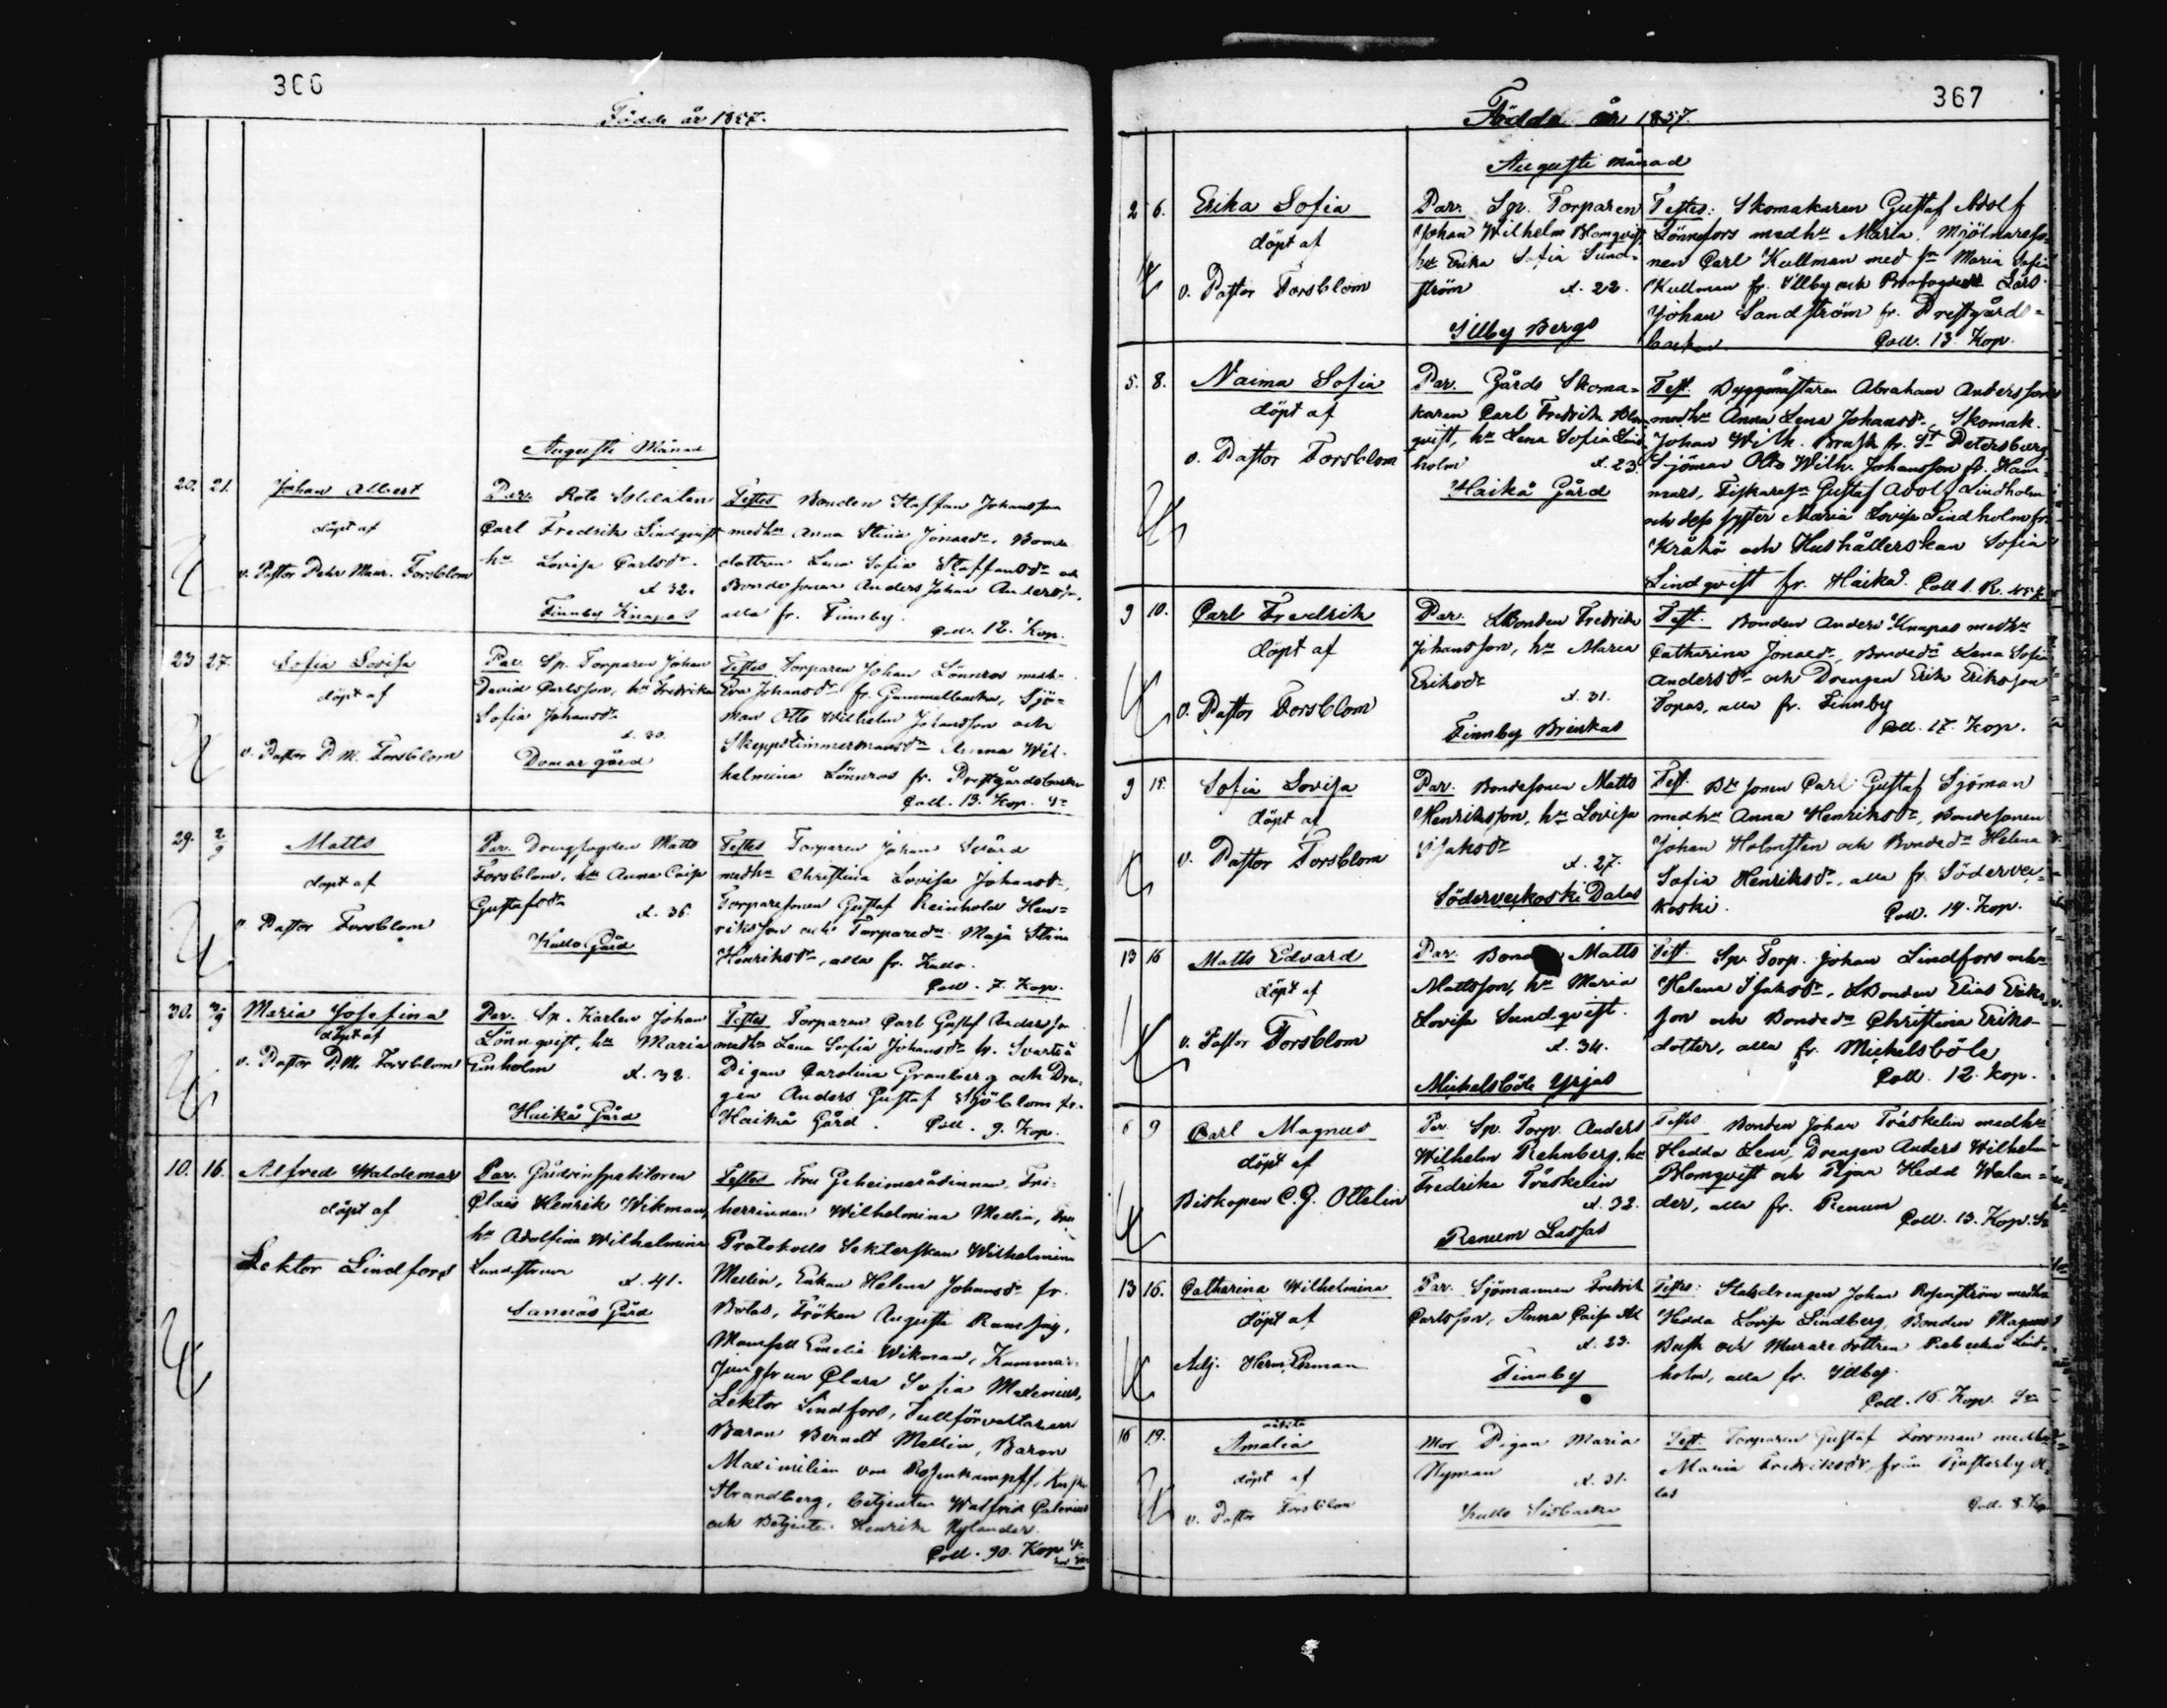 366
Födde år 1857.
Augusti Månad
20. 21.
Johan Albert
döpt af
v. Pastor Pehr Maur. Forsblom
Par. Rote Soldaten
Carl Fredrik Lindqvist
hu Lovisa Carlsdr.
d. 32.
Finnby Knapas
Testes Bonden Staffan Johansson
medhu Anna Stina Jonaedr, Bonde
dottren Lena Sofia Staffansdr och
Bondesonen Anders Johan Anderss.
alla fr. Finnby.
Coll. 12. Kop.
23 27.
Sofia Lovisa
döpt af
v. Pastor P. M. Forsblom
Par. Sp. Torparen Johan
David Carlsson, hu Fredrika
Sofia Johansdr
d. 30.
Domargård
Testes Torparen Johan Lönnros medh
Eva Johansdr fr. Gammelbacka, Sjö=
man Otto Wilhelm Johansson och
Skeppstimmermansdr Anna Wil-
helmina Lönnros fr. Prestgårdsbacken
Coll. 13. Kop. Sr
29. 2/9
Matts
döpt af
v Pastor Forsblom
Par. Drengfogden Matts
Forsblom, hu Anna Caisa
Gustafsdr
d. 36.
Kullo Gård
Testes Torparen Johan Svärd
medhu Christina Lovisa Johansdr,
Torparesonen Gustaf Reinhold Hen=
riksson och Torparedr Maja Stina
Henriksdr, alla fr. Kullo.
Coll. 7. Kop.
30. 3/9
Maria Josefina
döpt af
v. Pastor P. M. Forsblom
Par. Sp. Karlen Johan
Lönnqvist, hu Maria
Enholm
d. 32.
Haikå Gård
Testes Torparen Carl Gustaf Andersson
medhu Lena Sofia Johansdr fr. Svartså
Pigan Carolina Granberg och Dren=
gen Anders Gustaf Sjöblom fr.
Haikå Gård. Coll. 9. Kop.
10. 16.
Alfred Waldemar
döpt af
Lektor Lindfors
Par. Gårdsinspektoren
Claës Henrik Wikman,
hu Adolfina Wilhelmina
Lundstrum
d. 41.
Sannäs Gård
Testes Fru Geheimerådinnan, Fri-
herrinnan Wilhelmina Mellin, Fru
Protokolls Sekterskan Wilhelmina
Mellin, Enkan Helena Johansdr fr.
Botas, Fröken Augusta Ramsay,
Mamsell Emelia Wikman, Kammar-
jungfrun Clara Sofia Malenius,
Lektor Lindfors, Tullförvaltaren
Baron Berndt Mellin, Baron
Maximilian von Rosenkampff,
Strandberg, betjenten Walfrid
och Betjente. Henrik Nylander.
Coll. 90. Kop Sr
367
Födda år 1857.
Augusti månad
2 6.
Erika Sofia
döpt af
v. Pastor Forsblom
Par. Sp. Torparen
Johan Wilhelm Blomqvist
hu Erika Sofia Sund=
ström d. 22.
Illby Bergs
Testes: Skomakaren Gustaf Adolf
Lönnefors medhu Maria, Mjölnareso=
nen Carl Kullman med sr Maria Sofia
Kullman fr. Illby och Brofogden Lars
Johan Sandström fr. Prestgårds=
backen. Coll. 13. Kop.
5. 8.
Naima Sofia
döpt af
v. Pastor Forsblom
Par. Gårds Skoma=
karen Carl Fredrik Blom
qvist, hu Lena Sofia Lind
holm d. 23.
Haikå Gård
Test. Byggmästaren Abraham Andersson
medhu Anna Lena Johansdr, Skomak.
Johan Wilh. Brusk fr. St Petersburg
Sjöman Otto Wilh. Johansson fr. Ham=
mars, Fiskaresn Gustaf Adolf Lindholm
och dess syster Maria Lovisa Lindholm fr.
Kråkö och Hushållerskan Sofia
Lindqvist fr. Haikå. Coll 1. R. 45 k
9 10.
Carl Fredrik
döpt af
v. Pastor Forsblom
Par. LBonden Fredrik
Johansson, hu Maria
Eriksdr
d. 31.
Finnby Brinkas
Test. Bonden Anders Knapas medhu
Catharina Jonaedr, Bondedr Lena Sofia
Andersdr och Drengen Erik Eriksson
Topas, alla fr. Finnby
Coll. 17. Kop.
9 15.
Sofia Lovisa
döpt af
v. Pastor Forsblom
Par. Bondesonen Matts
Henriksson, hu Lovisa
Isaksdr
d. 27.
Söderveckoski Dalas
Test. Bde sonen Carl Gustaf Sjöman
medhu Anna Henriksdr, Bondesonen
Johan Holmsten och Bondedr Helena
Sofia Henriksdr, alla fr. Söderve=
koski. Coll. 14. Kop.
13 16
Matts Edvard
döpt af
v. Pastor Forsblom
Par. Bonden Matts
Mattsson, hu Maria
Lovisa Sundqvist.
d. 34.
Mickelsböle Yrjas
Test. Sp. Torp. Johan Lindfors mhu
Helena Isaksdr, LBonden Elias Eriks-
son och Bondedr Christina Eriks-
dotter, alla fr. Mickelsböle
Coll. 12. Kop.
6 9
Carl Magnus
döpt af
Biskopen C. G. Ottelin
Par. Sp. Torp. Anders
Wilhelm Rehnberg, hu
Fredrika Träskelin
d. 32.
Renum Lassas
Testes Bonden Johan Träskelin medhu
Hedda Lena, Drengen Anders Wilhelm
Blomqvist och Pigan Hedd Walan=
der, alla fr. Renum
Coll. 13. Kop. Sr
13 16.
Catharina Wilhelmina
döpt af
Adj. Herm. Öhman
Par. Sjömannen Fredrik
Carlsson, Anna Caisa Al
d. 23.
Finnby
Testes: Stalldrengen Johan Rosenström medhu
Hedda Lovisa Lindberg, Bonden Magnus
Busk och Murare dottren Rebecka Lind=
holm, alla fr. Illby.
Coll. 16. Kop. Sr
16 19.
oäkta
Amalia
döpt af
v. Pastor Forsblom
Mor Pigan Maria
Nyman d. 31.
Kullo Sisbacka
Test. Torparen Gustaf Forsman medhu
Maria Fredriksdr från Tjusterby
Coll. 8. Kop